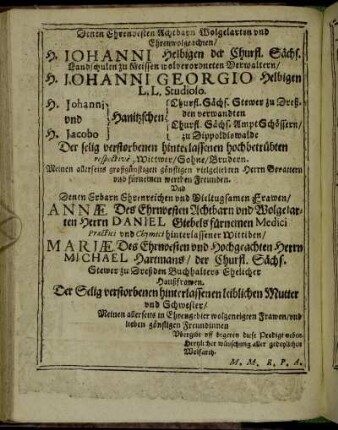 Denen Ehrenvesten Achtbarn Wolgelarten und
Ehrenwolgeachten/
H. JOHANNI Helbigen der Churfl. Sächs.
Landschulen zu Meissen wolverordneten Verwaltern/
H. JOHANNI GEORGIO Helbigen
L. L. Studioso.
H. Johanni
und
H. Jacobo
Hanitzschen
Churfl. Sächs. Stewer zu Dreß-
den verwandten
Churfl. Sächs. Ampt Schössern/
zu Dippoldiswalde
Der selig verstorbenen hinterlassenen hochbetrübten
respectivè, Wittwer/ Sohne/ Brudern.
Meinen allerseits großgünstigen günstigen vielgeliebten Herrn Gevattern
und fürnemen werthen Freunden.
Und
Denen Erbarn Ehrenreichen und Vieltugsamen Frawen/
ANNÆ Des Ehrnvesten Achtbarn und Wolgelar-
ten Herrn DANIEL Giebels fürnemen Medici
Practici und Chymici hinterlassener Wittiben/
MARIÆ Des Ehrnvesten und Hochgeachten Herrn
MICHAEL Hartmans/ der Churfl. Sächs.
Stewer zu Dreßden Buchhalters Ehelicher
Haußfrawen.
Der Selig verstorbenen hinterlassenen leiblichen Mutter
und Schwester/
Meinen allerseits in Ehrengebier wolgeneigten Frawen/ und
lieben günstigen Freundinnen
Übergibt uff begeren diese Predigt neben
Hertzlicher wünschung aller gedeylichen
Wolfarth.
M. M. R. P. A.